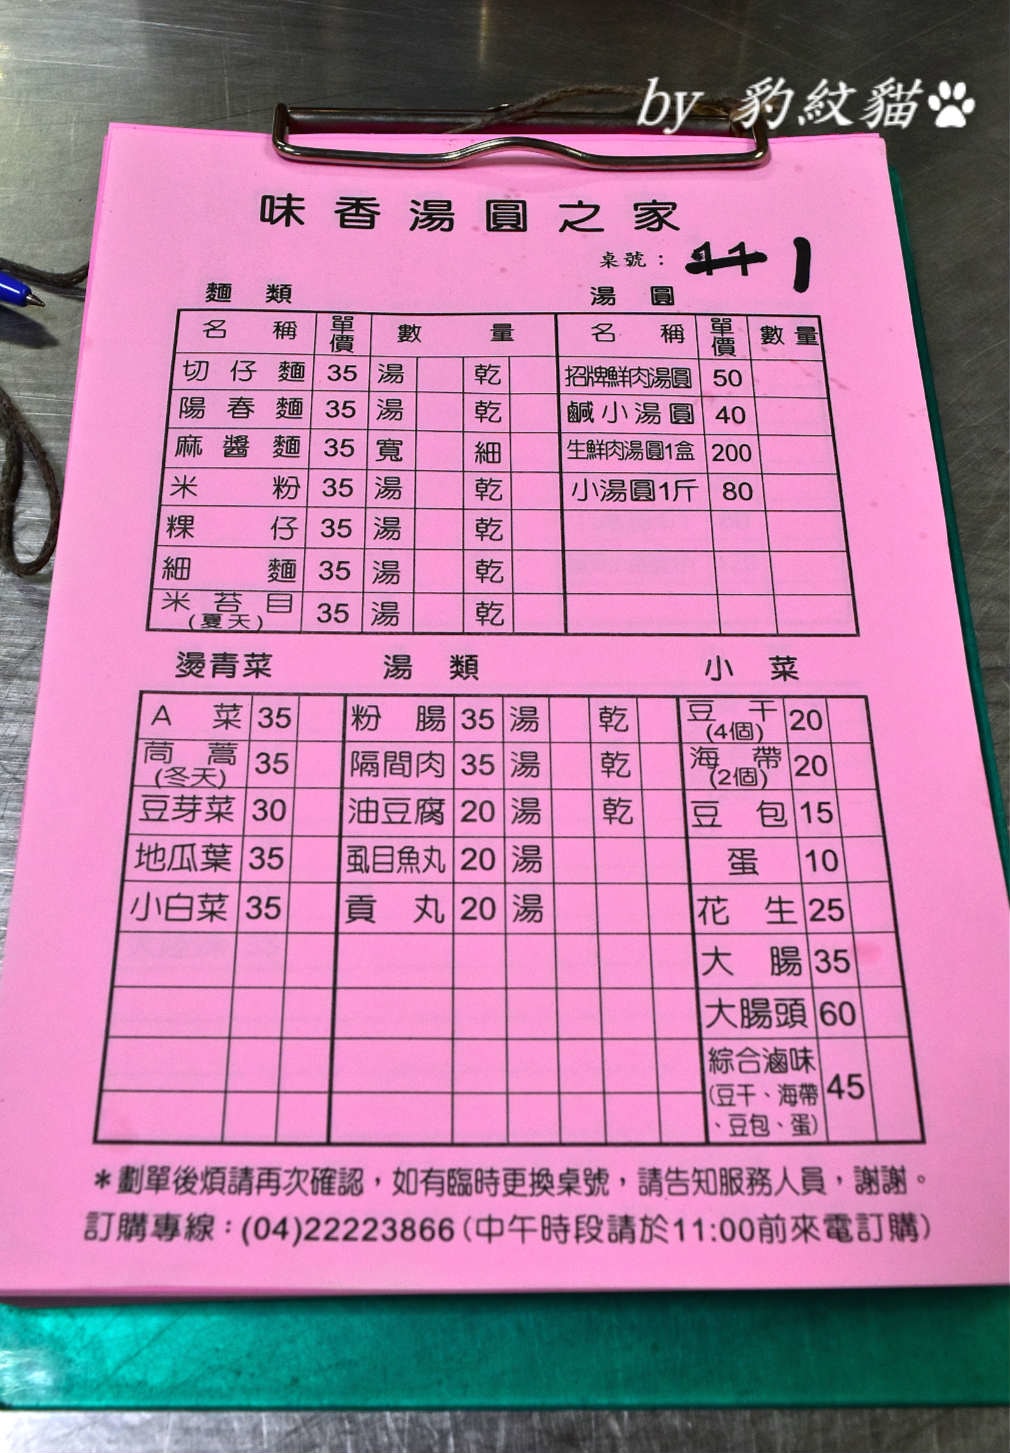 by 豹紋貓
味香湯圓之家
桌號： 1
麵類 湯圓
名稱 單價 數量 名稱 單價 數量
切仔麵 35 湯 乾 招牌鮮肉湯圓 50
陽春麵 35 湯 乾 鹹小湯圓 40
麻醬麵 35 寬 細 生鮮肉湯圓1盒 200
米粉 35 湯 乾 小湯圓1斤 80
粿仔 35 湯 乾
細麵 35 湯 乾
米苔目(夏天) 35 湯 乾
燙青菜 湯類 小菜
A菜 35 粉腸 35 湯 乾 豆干(4個) 20
茼蒿(冬天) 35 隔間肉 35 湯 乾 海帶(2個) 20
豆芽菜 30 油豆腐 20 湯 乾 豆包 15
地瓜葉 35 虱目魚丸 20 湯 蛋 10
小白菜 35 貢丸 20 湯 花生 25
大腸 35
大腸頭 60
綜合滷味(豆干、海帶、豆包、蛋) 45
＊劃單後煩請再次確認，如有臨時更換桌號，請告知服務人員，謝謝。
訂購專線：(04)22223866(中午時段請於11:00前來電訂購)